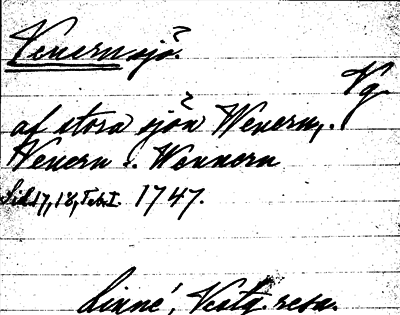 Venern sjö.
Vg.
af stora sjön Wenern,.
Wenern l. Wennern
Sid. 17, 18, Tab. I. 1747.
Linné, Vestg. resa.